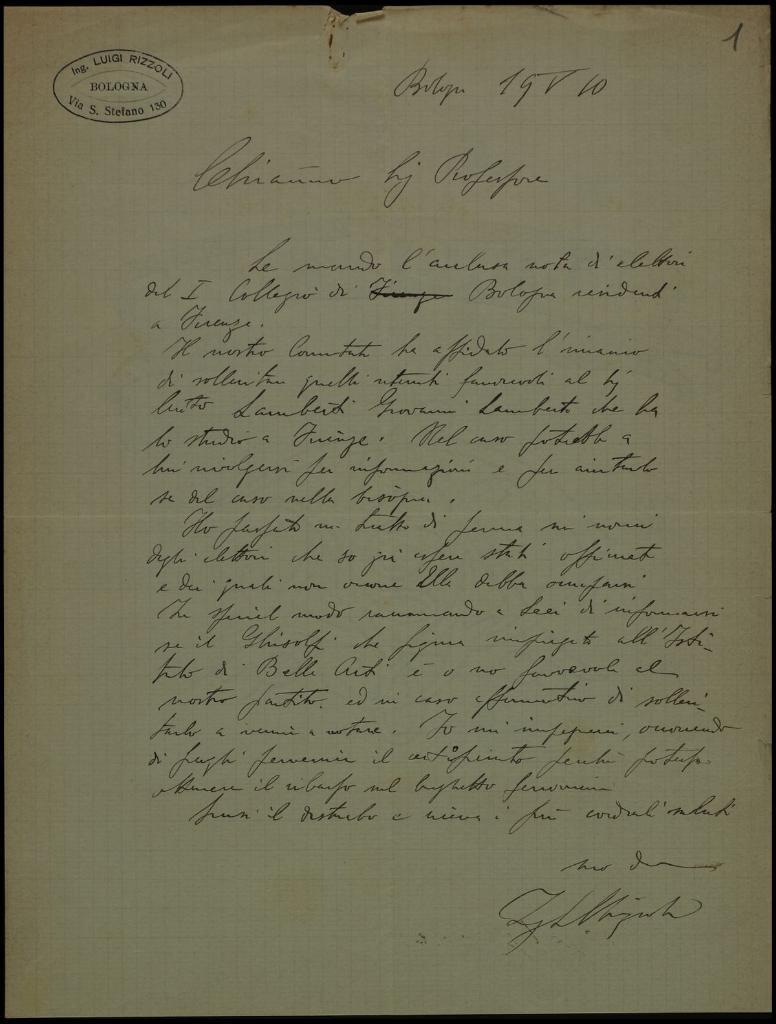 1
Ing. LUIGI RIZZOLI
BOLOGNA
Via S. Stefano 130
Bologna 19 V 10
Chiarimo Sig Professore
Le mando l'acclusa nota di elettori
del I Collegio di Firenze Bologna residenti
a Firenze.
Il nostro Comitato ha affidato l'incarico
di sollecitare quelli ritenuti favorevoli al Sig
Lamberti Giovanni Lamberto che ha
lo studio a Firenze. Nel caso potrebbe a
lui rivolgersi per informazioni e per aiutarlo
se del caso nella bisogna.
Ho passato un tratto di penna sui nomi
degli elettori che so già essere stati
e dei quali non occorre Ella debba occuparsi
In special modo raccomando a Lei di informarsi
se il Ghisolfi che figura impiegato all'Isti-
tuto di Belle Arti è o no favorevole al
nostro partito. ed in caso affermativo di solleci-
tarlo a venire a votare. Io mi impegnerei, occorrendo
di fargli pervenire il perchè potesse
ottenere il ribasso sul biglietto ferroviario
Scusi il disturbo e riceva i più cordiali saluti
suo